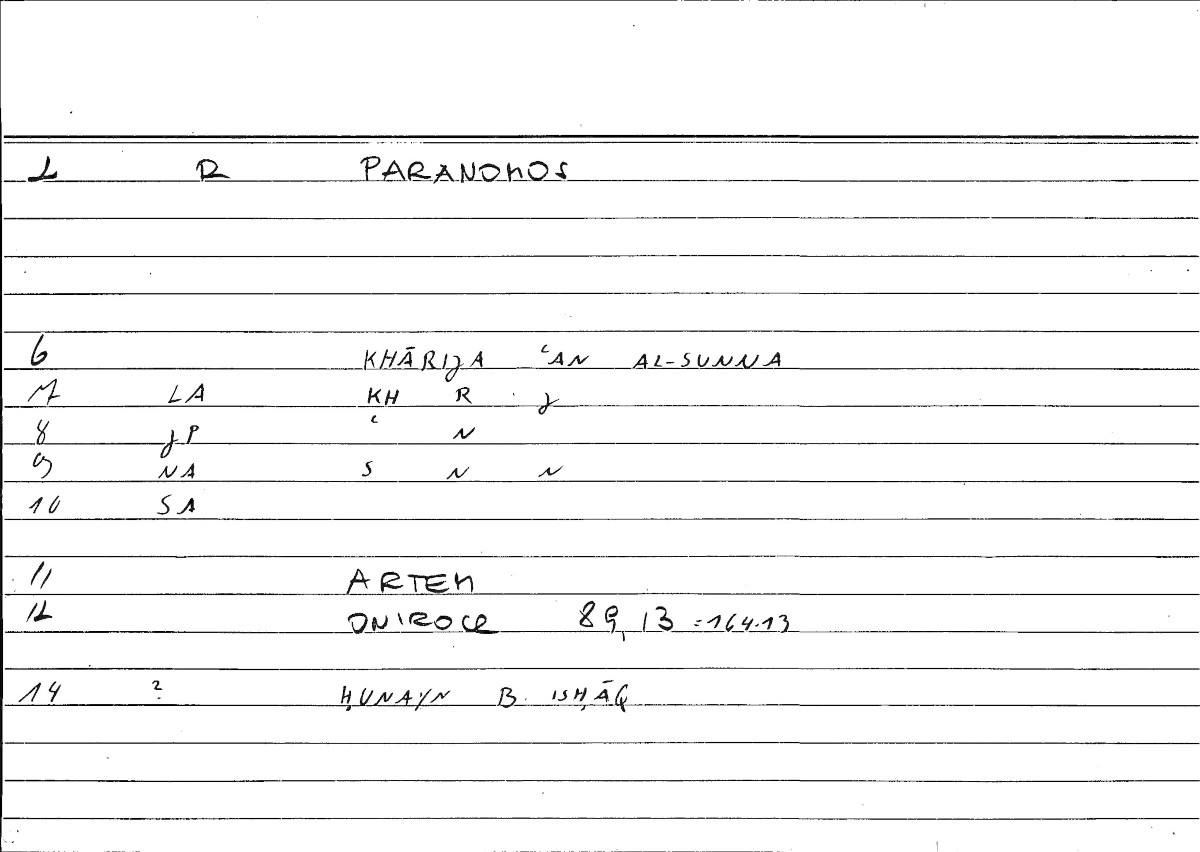 2 R PARANOMOS
6 KHĀRIJA ʿAN AL-SUNNA
7 LA KH R J
8 JP ʿ N
9 NA S N N
10 SA
11 ARTEM
12 ONIROCR 89,13 =164.13
14 2 ḤUNAYN B. ISḤĀQ